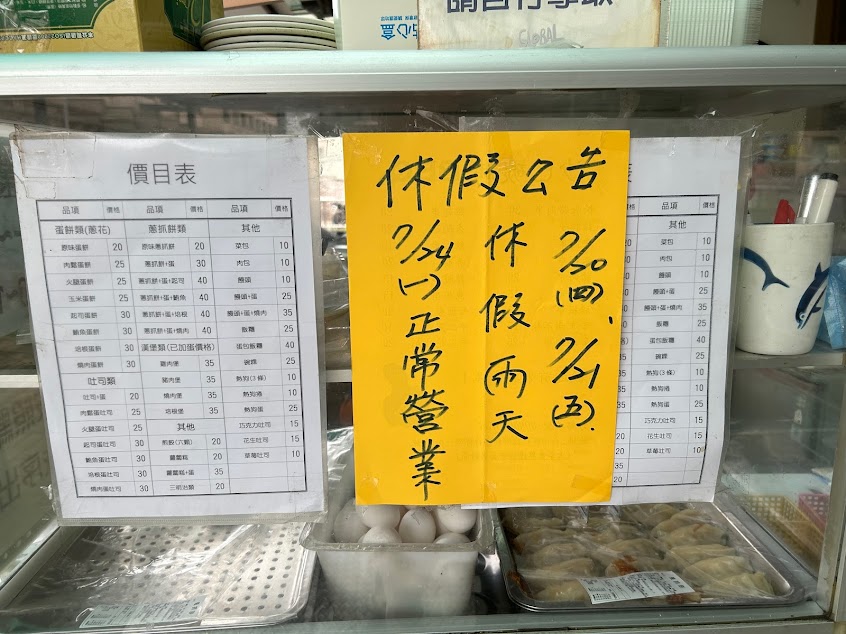 請自行拿取
點心盒
GLOBAL
價目表
品項 價格 品項 價格 品項 價格
蛋餅類(蔥花) 蔥抓餅類 其他
原味蛋餅 20 原味蔥抓餅 20 菜包 10
肉鬆蛋餅 25 蔥抓餅+蛋 30 肉包 10
火腿蛋餅 25 蔥抓餅+蛋+起司 40 饅頭 10
玉米蛋餅 25 蔥抓餅+蛋+鮪魚 40 饅頭+蛋 25
起司蛋餅 30 蔥抓餅+蛋+培根 40 饅頭+蛋+燒肉 35
鮪魚蛋餅 30 蔥抓餅+蛋+燒肉 40 飯糰 25
培根蛋餅 30 漢堡類(已加蛋價格) 蛋包飯糰 40
燒肉蛋餅 30 雞肉堡 35 碗粿 25
吐司類 豬肉堡 35 熱狗(3條) 10
吐司+蛋 20 燒肉堡 35 熱狗捲 10
肉鬆蛋吐司 25 培根堡 35 熱狗蛋 25
火腿蛋吐司 25 其他 巧克力吐司 15
起司蛋吐司 30 煎餃(六顆) 20 花生吐司 15
鮪魚蛋吐司 30 蘿蔔糕 20 草莓吐司 10
培根蛋吐司 30 蘿蔔糕+蛋 35
燒肉蛋吐司 30 三明治類 20
休假公告
7/20(四)、7/21(五).
休假兩天
7/24(一)正常營業
表
品項 價格
其他
菜包 10
肉包 10
饅頭 10
饅頭+蛋 25
饅頭+蛋+燒肉 35
飯糰 25
蛋包飯糰 40
碗粿 25
熱狗(3條) 10
熱狗捲 10
熱狗蛋 25
巧克力吐司 15
20 花生吐司 15
20 草莓吐司 10
35
20